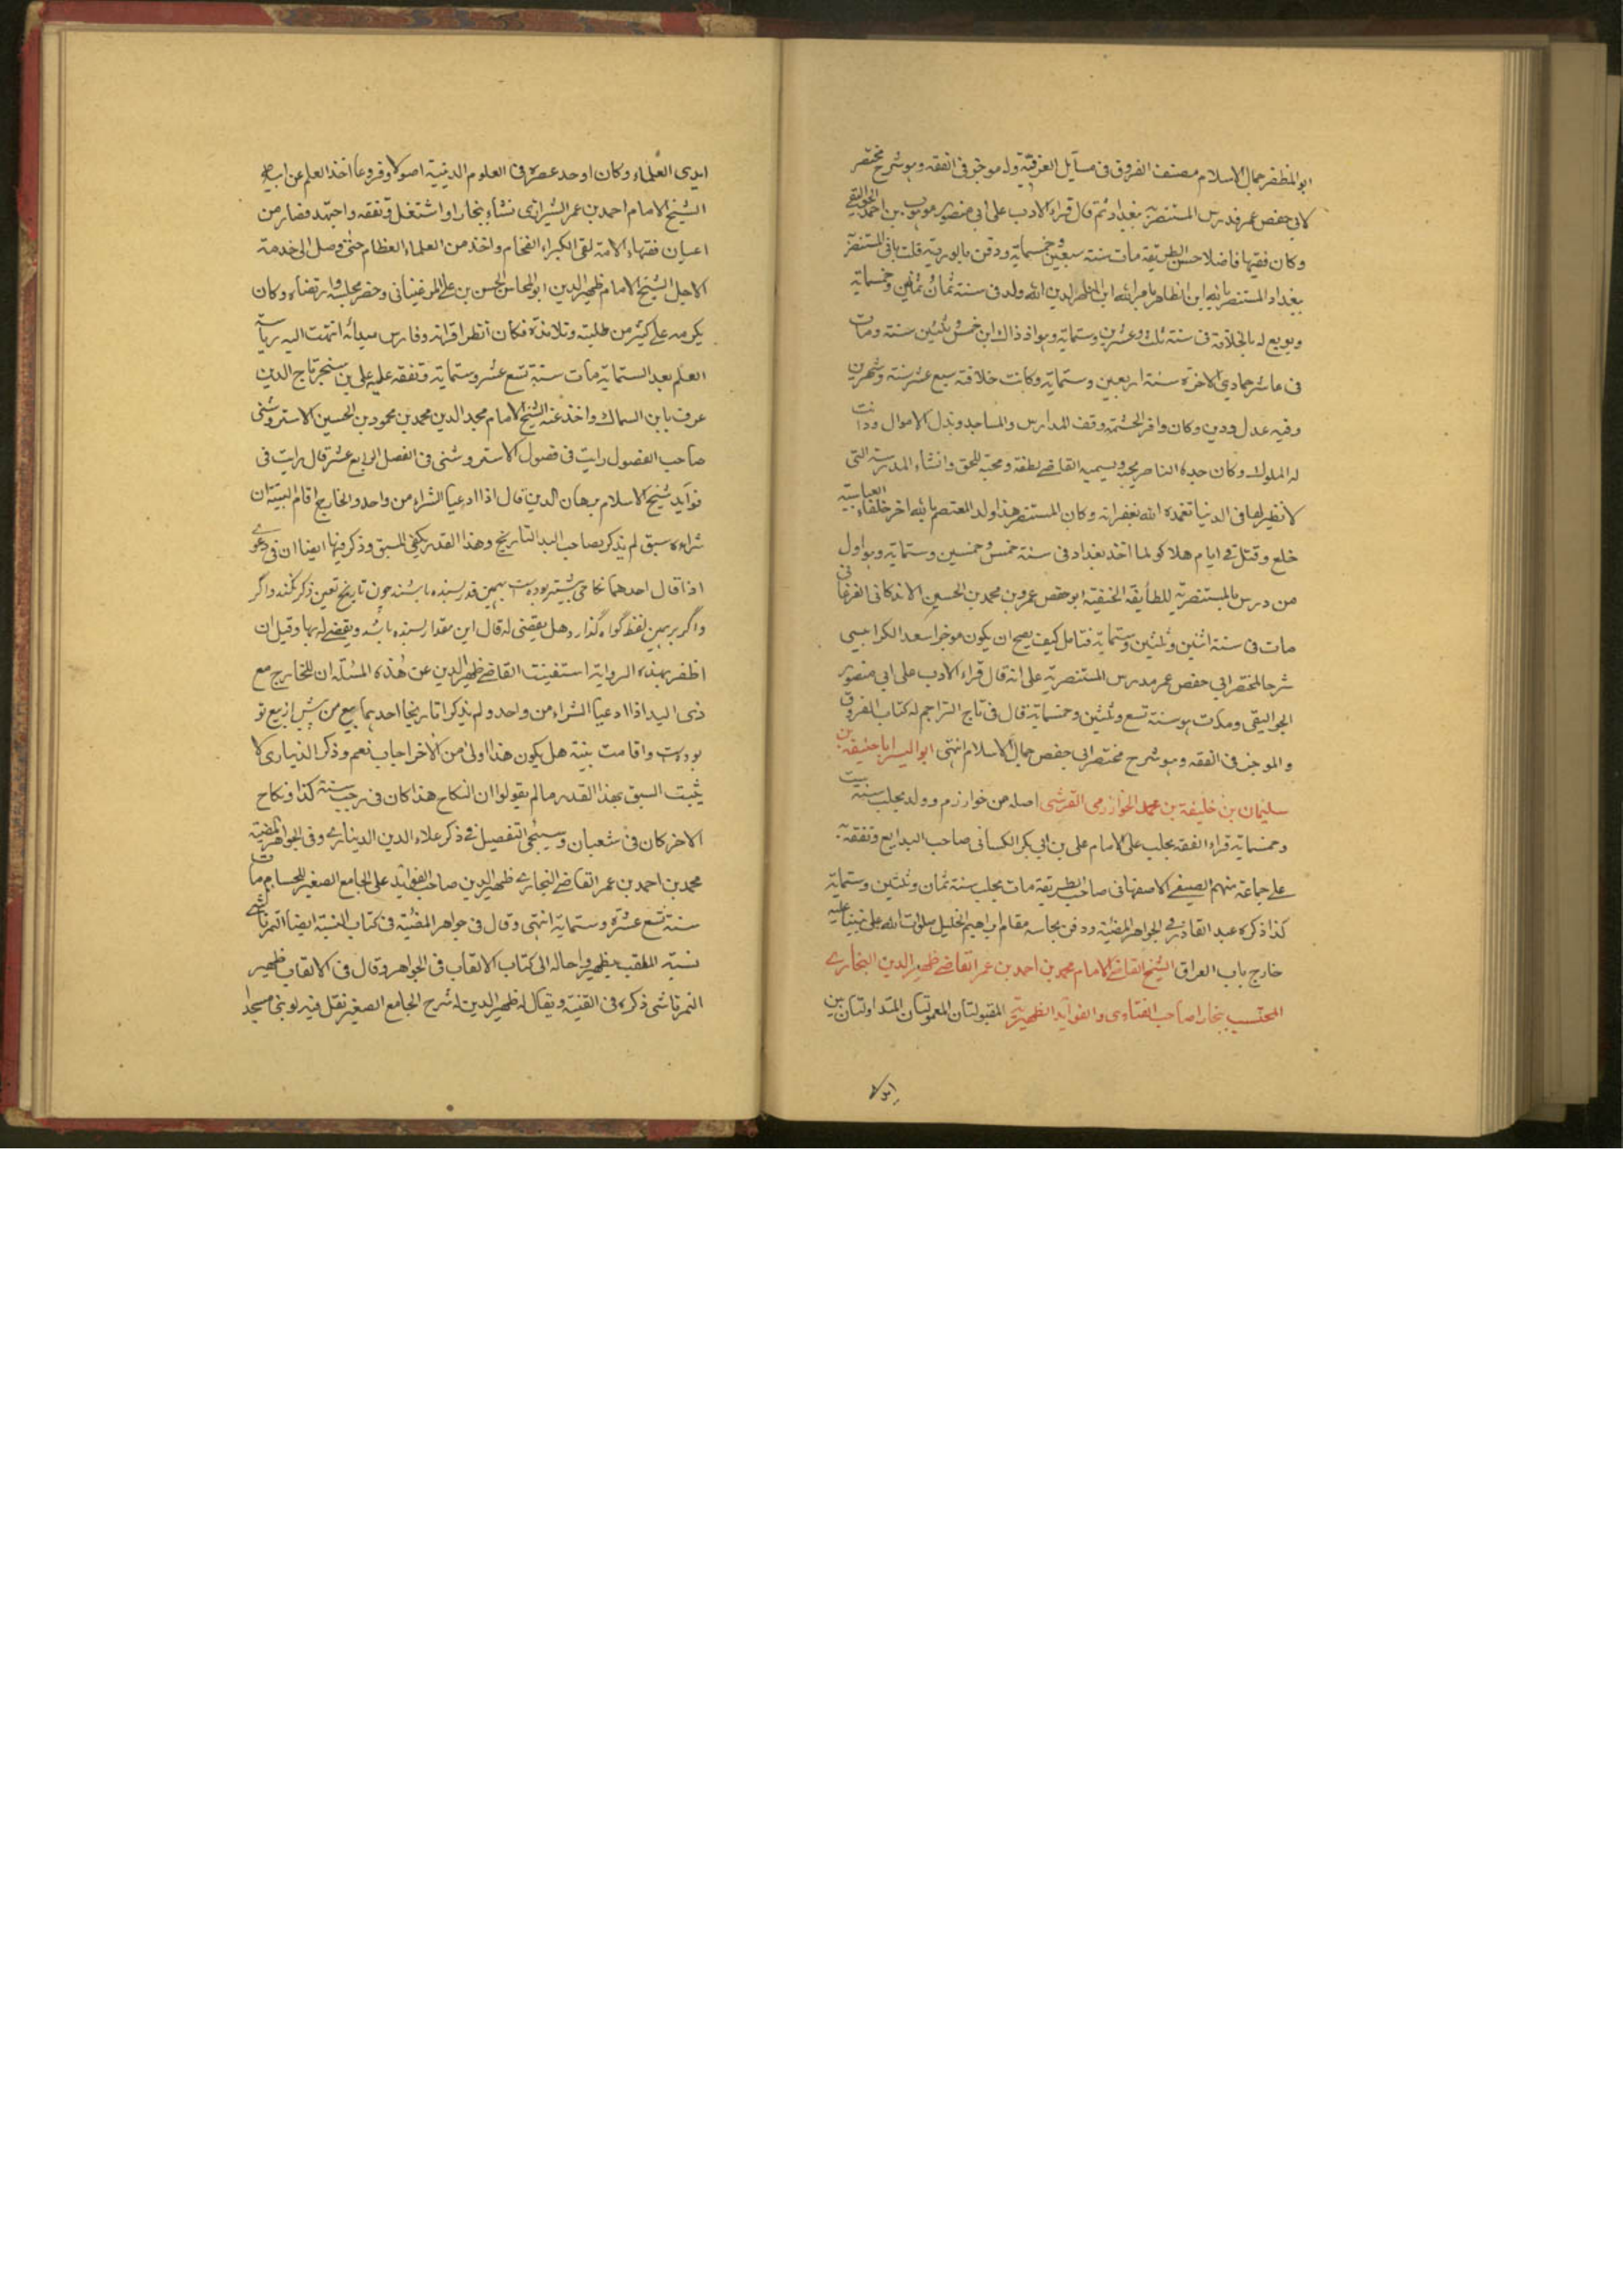 ابو المظفر جمال الاسلام مصنف الفروق فى مسآيل الفرقية وله موجز فى الفقه وهو شرح مختصر
لابى حفص عمر مدرس المستنصرية ببغداد ثم قال قراء الادب على ابى منصور موهوب بن احمد الجواليقى
وكان فقيها فاضلا حسن الطريقة مات سنة سبعين وخمسماية ودفن بالوردية قلت بانى المستنصرية
ببغداد المستنصر بالله ابن الظاهر بامر الله ابن الناصر لدين الله ولد فى سنة ثمان ثمانين وخمسماية
وبويع له بالخلافة فى سنة ثلث وعشرين وستماية وهو اذ ذاك ابن خمس ثلثين سنة ومات
فى عاشر جمادي الاخرة سنة اربعين وستماية وكانت خلافته سبع عشر سنة وشهرين
وفيه عدل ودين وكان وافر الحشمة وقف المدارس والمساجد وبذل الاموال ودانت
له الملوك وكان جده الناصر يحبه ويسميه القاضے لطفه ومحبة للحق وانشاء المدرسة التى
لا نظير لها فى الدنيا تغمده الله بغفرانه وكان المستنصر هذا ولد المعتصم بالله اخر خلفاء العباسية
خلع وقتل فے ايام هلاكو لما اخذ بغداد فى سنة خمس وخمسين وستماية وهو اول
من درس بالمستنصرية للطايفة الحنفية ابو حفص عمر بن محمد بن الحسين الاندكانى الفرغانى
مات فى سنة اثنين وثلثين وستماية فتامل كيف يصح ان يكون موجز اسعد الكرابيسى
شرحا لمختصر ابى حفص عمر مدرس المستنصرية على انه قال قراء الادب على ابى منصور
الجواليقى ومات هو سنة تسع وثلثين وخمسماية قال فى تاج التراجم له كتاب الفروق
والموجز فى الفقه وهو شرح مختصر ابى حفص جمال الاسلام انتهى ابو اليسر ابا حنيفة بن
سليمان بن خليفة بن محمد الخوارزمى القرشى اصله من خوارزم وولد بحلب سنة ست
وخمسماية قراء الفقه بحلب على الامام على بن ابى بكر الكسانى صاحب البدايع وتفقه
على جماعة منهم الصيفى الاصفهانى صاحب الطريقة مات بحلب سنة ثمان وثلثين وستماية
كذا ذكره عبد القادر فے الجواهر المضيئة ودفن بجاسة مقام ابراهيم الخليل صلوات الله على نبينا وعليه
خارج باب العراق الشيخ القاضے الامام محمد بن احمد بن عمر القاضے ظهير الدين البخارے
المحتسب ببخارا صاحب الفتاوى والفوايد الظهيرية المقبولتان المعمولتان المتداولتان بين
ايدى العلماء وكان اوحد عصره فى العلوم الدينية اصولا وفروعا اخذ العلم عن ابيه
الشيخ الامام احمد بن عمر الشيرازى نشاء ببخارا واشتغل وتفقه واجتهد فصار من
اعيان فقهاء الامة لقى الكبراء الفخام واخذ من العلماء العظام حتى وصل الى خدمة
الاجل الشيخ الامام ظهير الدين ابو المحاسن الحسن بن على المرغينانى وحضر مجلسه وارتضاه وكان
يكرمه على كثير من طلبته وتلامذته فكان انظر اقرانه وفارس ميدانه انتهت اليه رياسة
العلم بعد الستماية مات سنة تسع عشر وستماية وتفقه عليه على بن سنجر تاج الدين
عرف بابن السماك واخذ عنه الشيخ الامام مجد الدين محمد بن محمود بن الحسين الاستروشنى
صاحب الفصول رايت فى فصول الاستروشنى فى الفصل الرابع عشر قال رايت فى
فوايد شيخ الاسلام برهان الدين قال اذا ادعيا الشراء من واحد والخارج اقام البينة ان
شراءه سبق لم يذكر لصاحب اليد التاريخ وهذا القدر يكفى للسبق وذكر فيها ايضا ان فى دعوى
اذا قال احدهما نكاح من پيشتر بوده است بهمين قدر بسنده باشند چون تاريخ تعين ذكر نكند واگر
واگر بر همين لفظ گواه گذارد هل يقضى له قال اين مقدار بسنده باشد ويقضے لها وقيل ان
اظفر بهذه الرواية استفينت القاضے ظهير الدين عن هذه المسئلة ان للخارج مع
ذى اليد اذا ادعيا الشراء من واحد ولم يذكرا تاريخا احدهما بيع من پيش از بيع تو
بوده است واقامت بينة هل يكون هذا اولى من الاخر اجاب نعم وذكر الدينارى لا
يثبت السبق بهذا القدر مالم يقولوا ان النكاح هذا كان فى رجب سنة كذا ونكاح
الاخر كان فى شعبان وسيجى التفصيل فے ذكر علاء الدين الدينارے وفى الجواهر المضيئة
محمد بن احمد بن عمر القاضے البخارے ظهير الدين صاحب الفوايد على الجامع الصغير للحسام مات
سنة تسع عشرة وستماية انتهى وقال فى جواهر المضيئة فى كتاب النسبة ايضا التمرتاشے
نسبة الملقب بظهير واحاله الى كتاب الالقاب فى الجواهر وقال فى الالقاب ظهير
التمرتاشى ذكره فى القنية ويقال له ظهير الدين له شرح الجامع الصغير نقل فيه لو بنى مسجدا